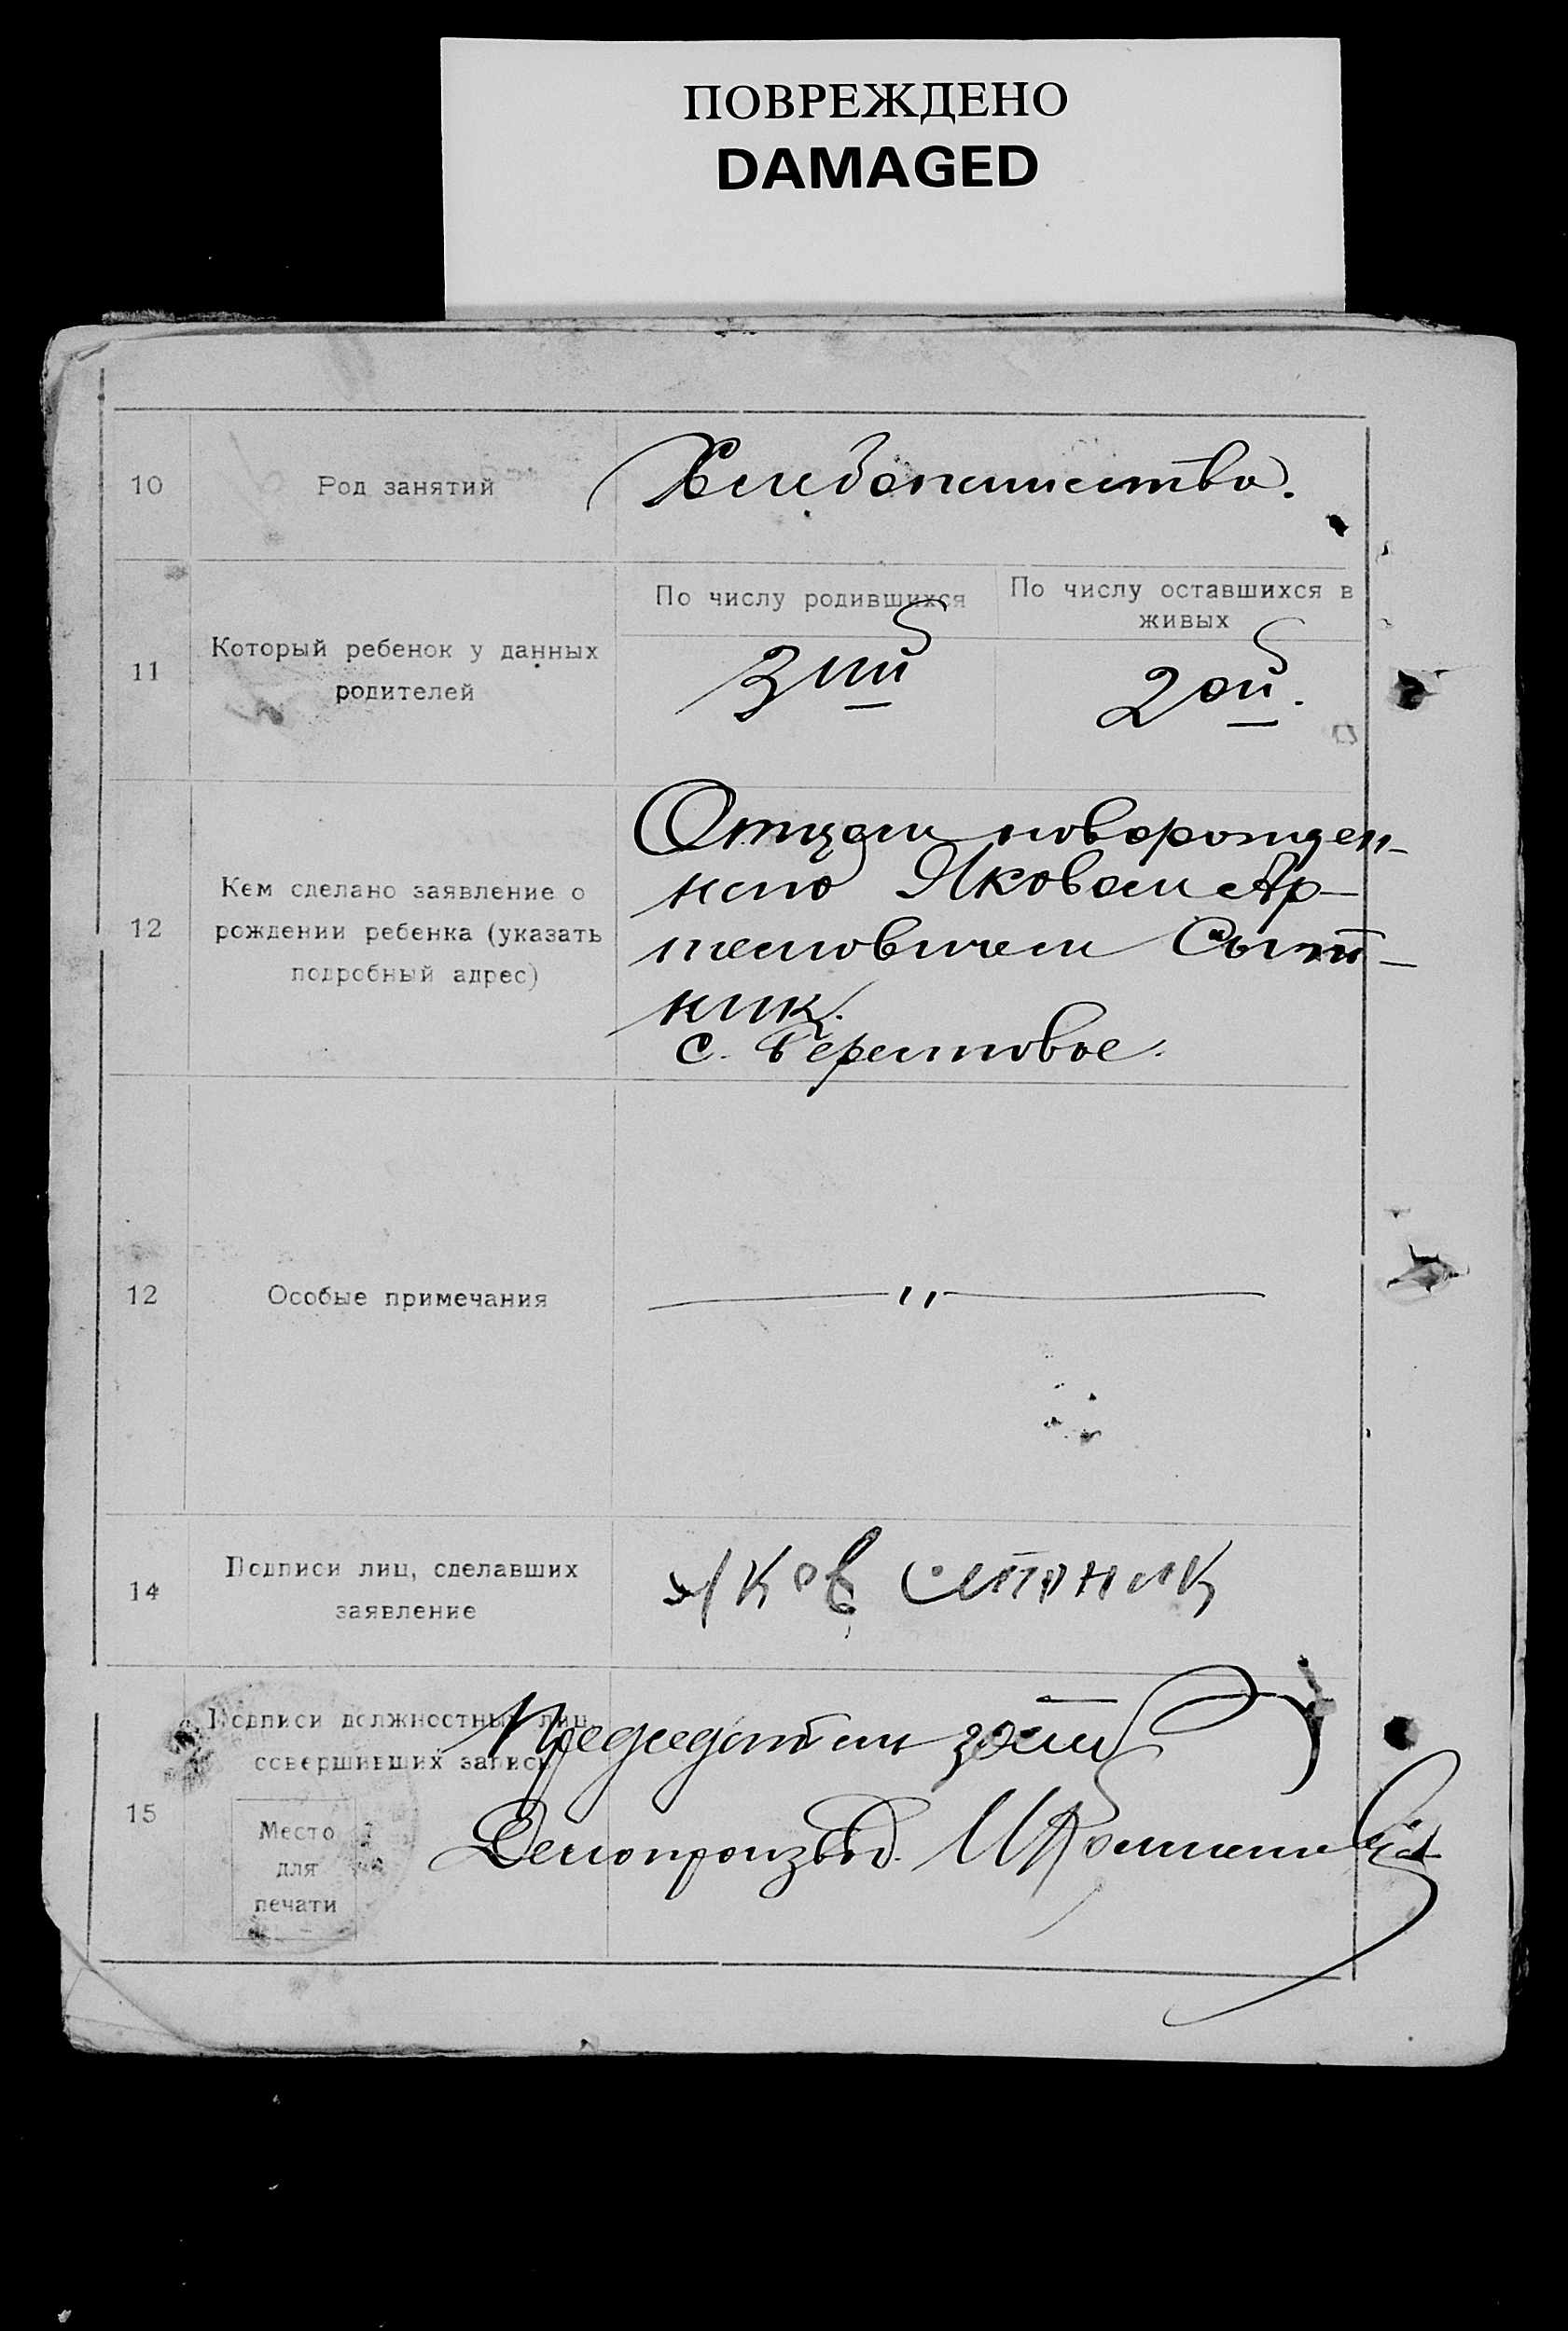 ПОВРЕЖДЕНО
DAMAGED
10
Род занятий
Хлебопашество.
11
Который ребенок у данных
родителей
По числу родившихся
3ий
По числу оставшихся в
живых
2ой.
12
Кем сделано заявление о
рождении ребенка (указать
подробный адрес)
Отцом новорожден-
ного Яковом Ар-
темовичем Сыт-
ник.
с. Берестовое.
12
Особые примечания
— " —
14
Подписи лиц, сделавших
заявление
Яков
15
Подписи должностных лиц,
совершивших запись
Место
для
печати
Председатель
Делопроизвод.